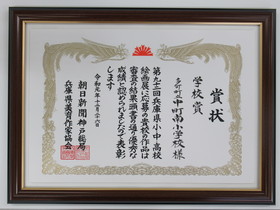 賞状
学校賞
多可町立中町南小学校様
第九十三回兵庫県小中高校
絵画展に応募の貴校の作品は
審査の結果頭書の通り優秀な
成績と認められましたので表彰
します
令和元年十二月二十六日
朝日新聞神戸総局
兵庫県美育作家協会